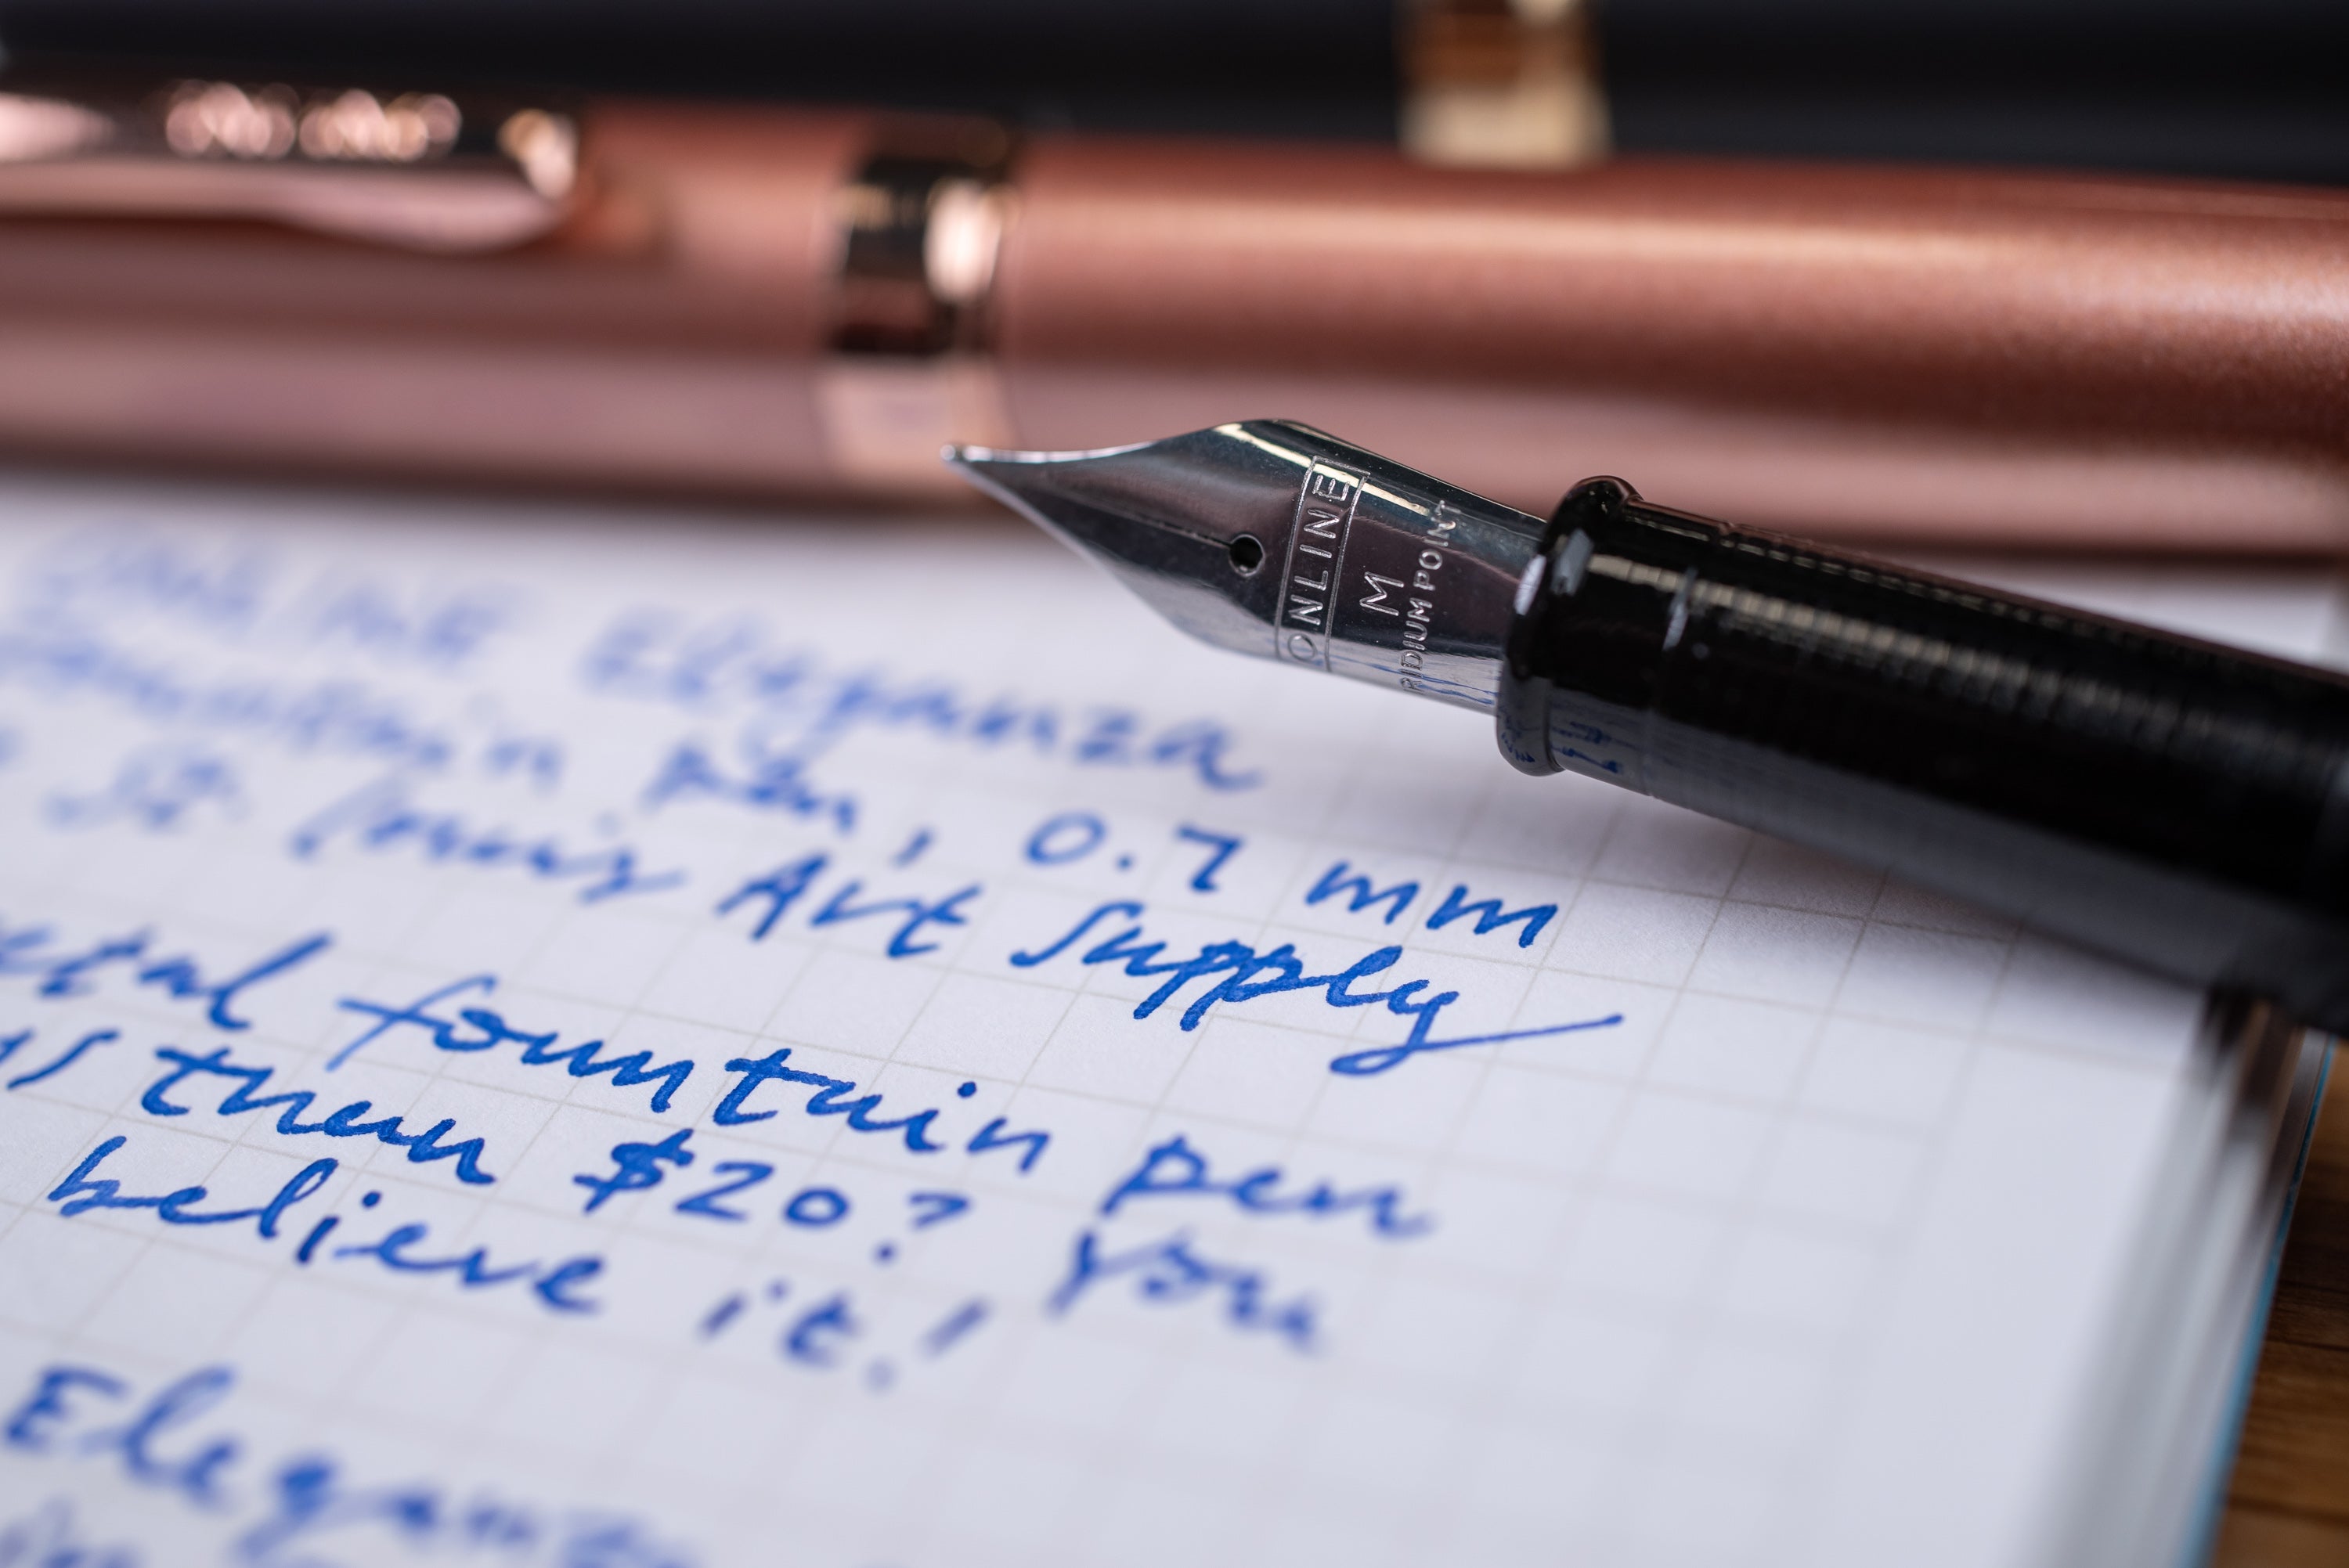 ONLINE
M
IRIDIUM POINT
ONLINE Eleganza
fountain pen, 0.7 mm
St Louis Art Supply
etal fountain pen
ss then $20? You
believe it!
Eleganza